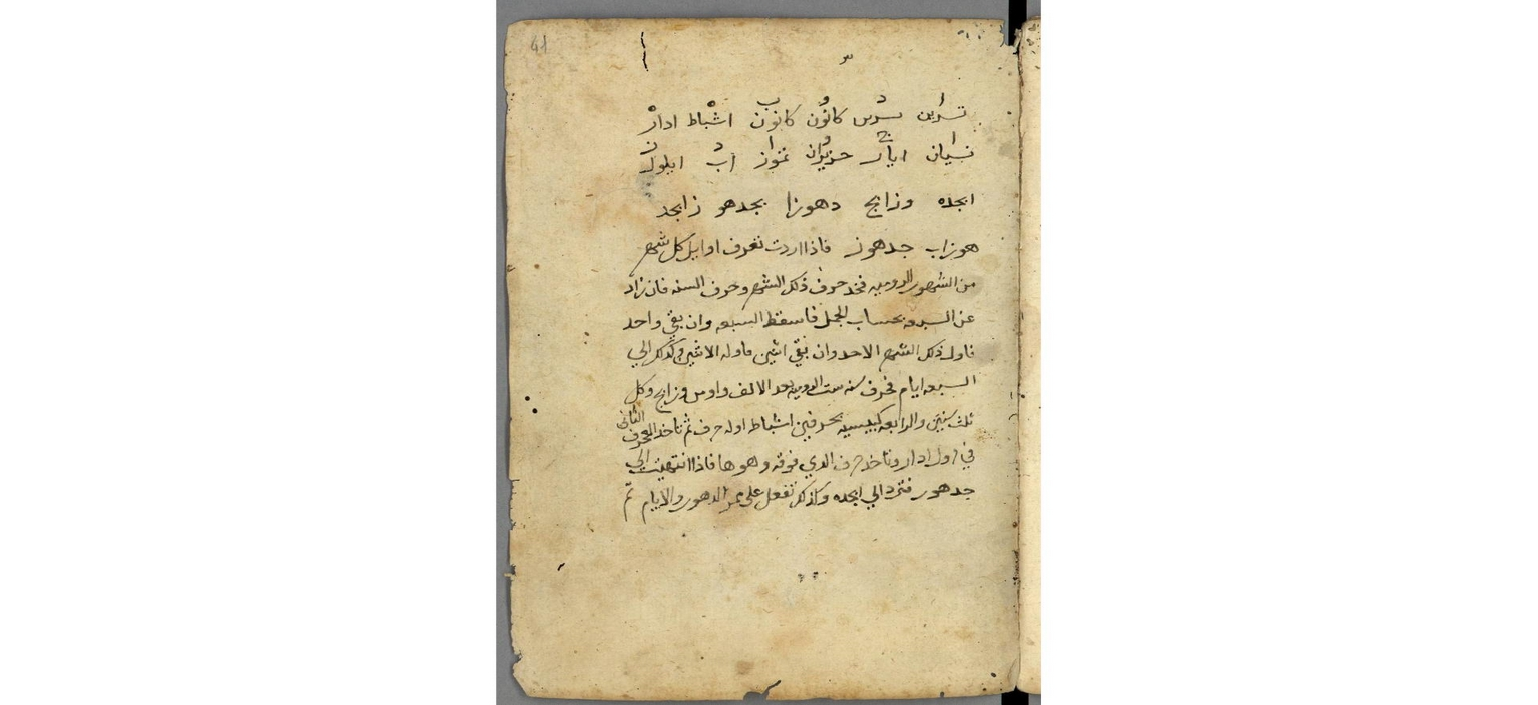 41
ا د و ب ه ه
تشرين تشرين كانون كانون اشباط ادار
ا ج و ا د ز
نسيان ايار حزيران تموز اب ايلول
ابجده وزابج دهوزا بجدهو زابجد
هوزاب جدهوز فاذا اردت تعرف اوايل كل شهر
من الشهور الروميه فخد حرف ذلك الشهر وحرف السنه فان زاد
عن السبعه بحساب الجمل فاسقط السبعه وان بقي واحد
فاول ذلك الشهر الاحد وان بقي اثنين فاوله الاثنين وكذلك الي
السبعه ايام فحرف سنه ست الروميه بعد الالف واوس وزابج وكل
ثلث سنين والرابعه كبيسيه بحرفين اشباط اوله حرف ثم تاخد الحرف الثاني
في اول ادار وتاخد حرف الدي فوقه وهو ها فاذا انتهيت الي
جدهوز فترد الي ابجده وكذلك تفعل علي ممر الدهور والايام تم